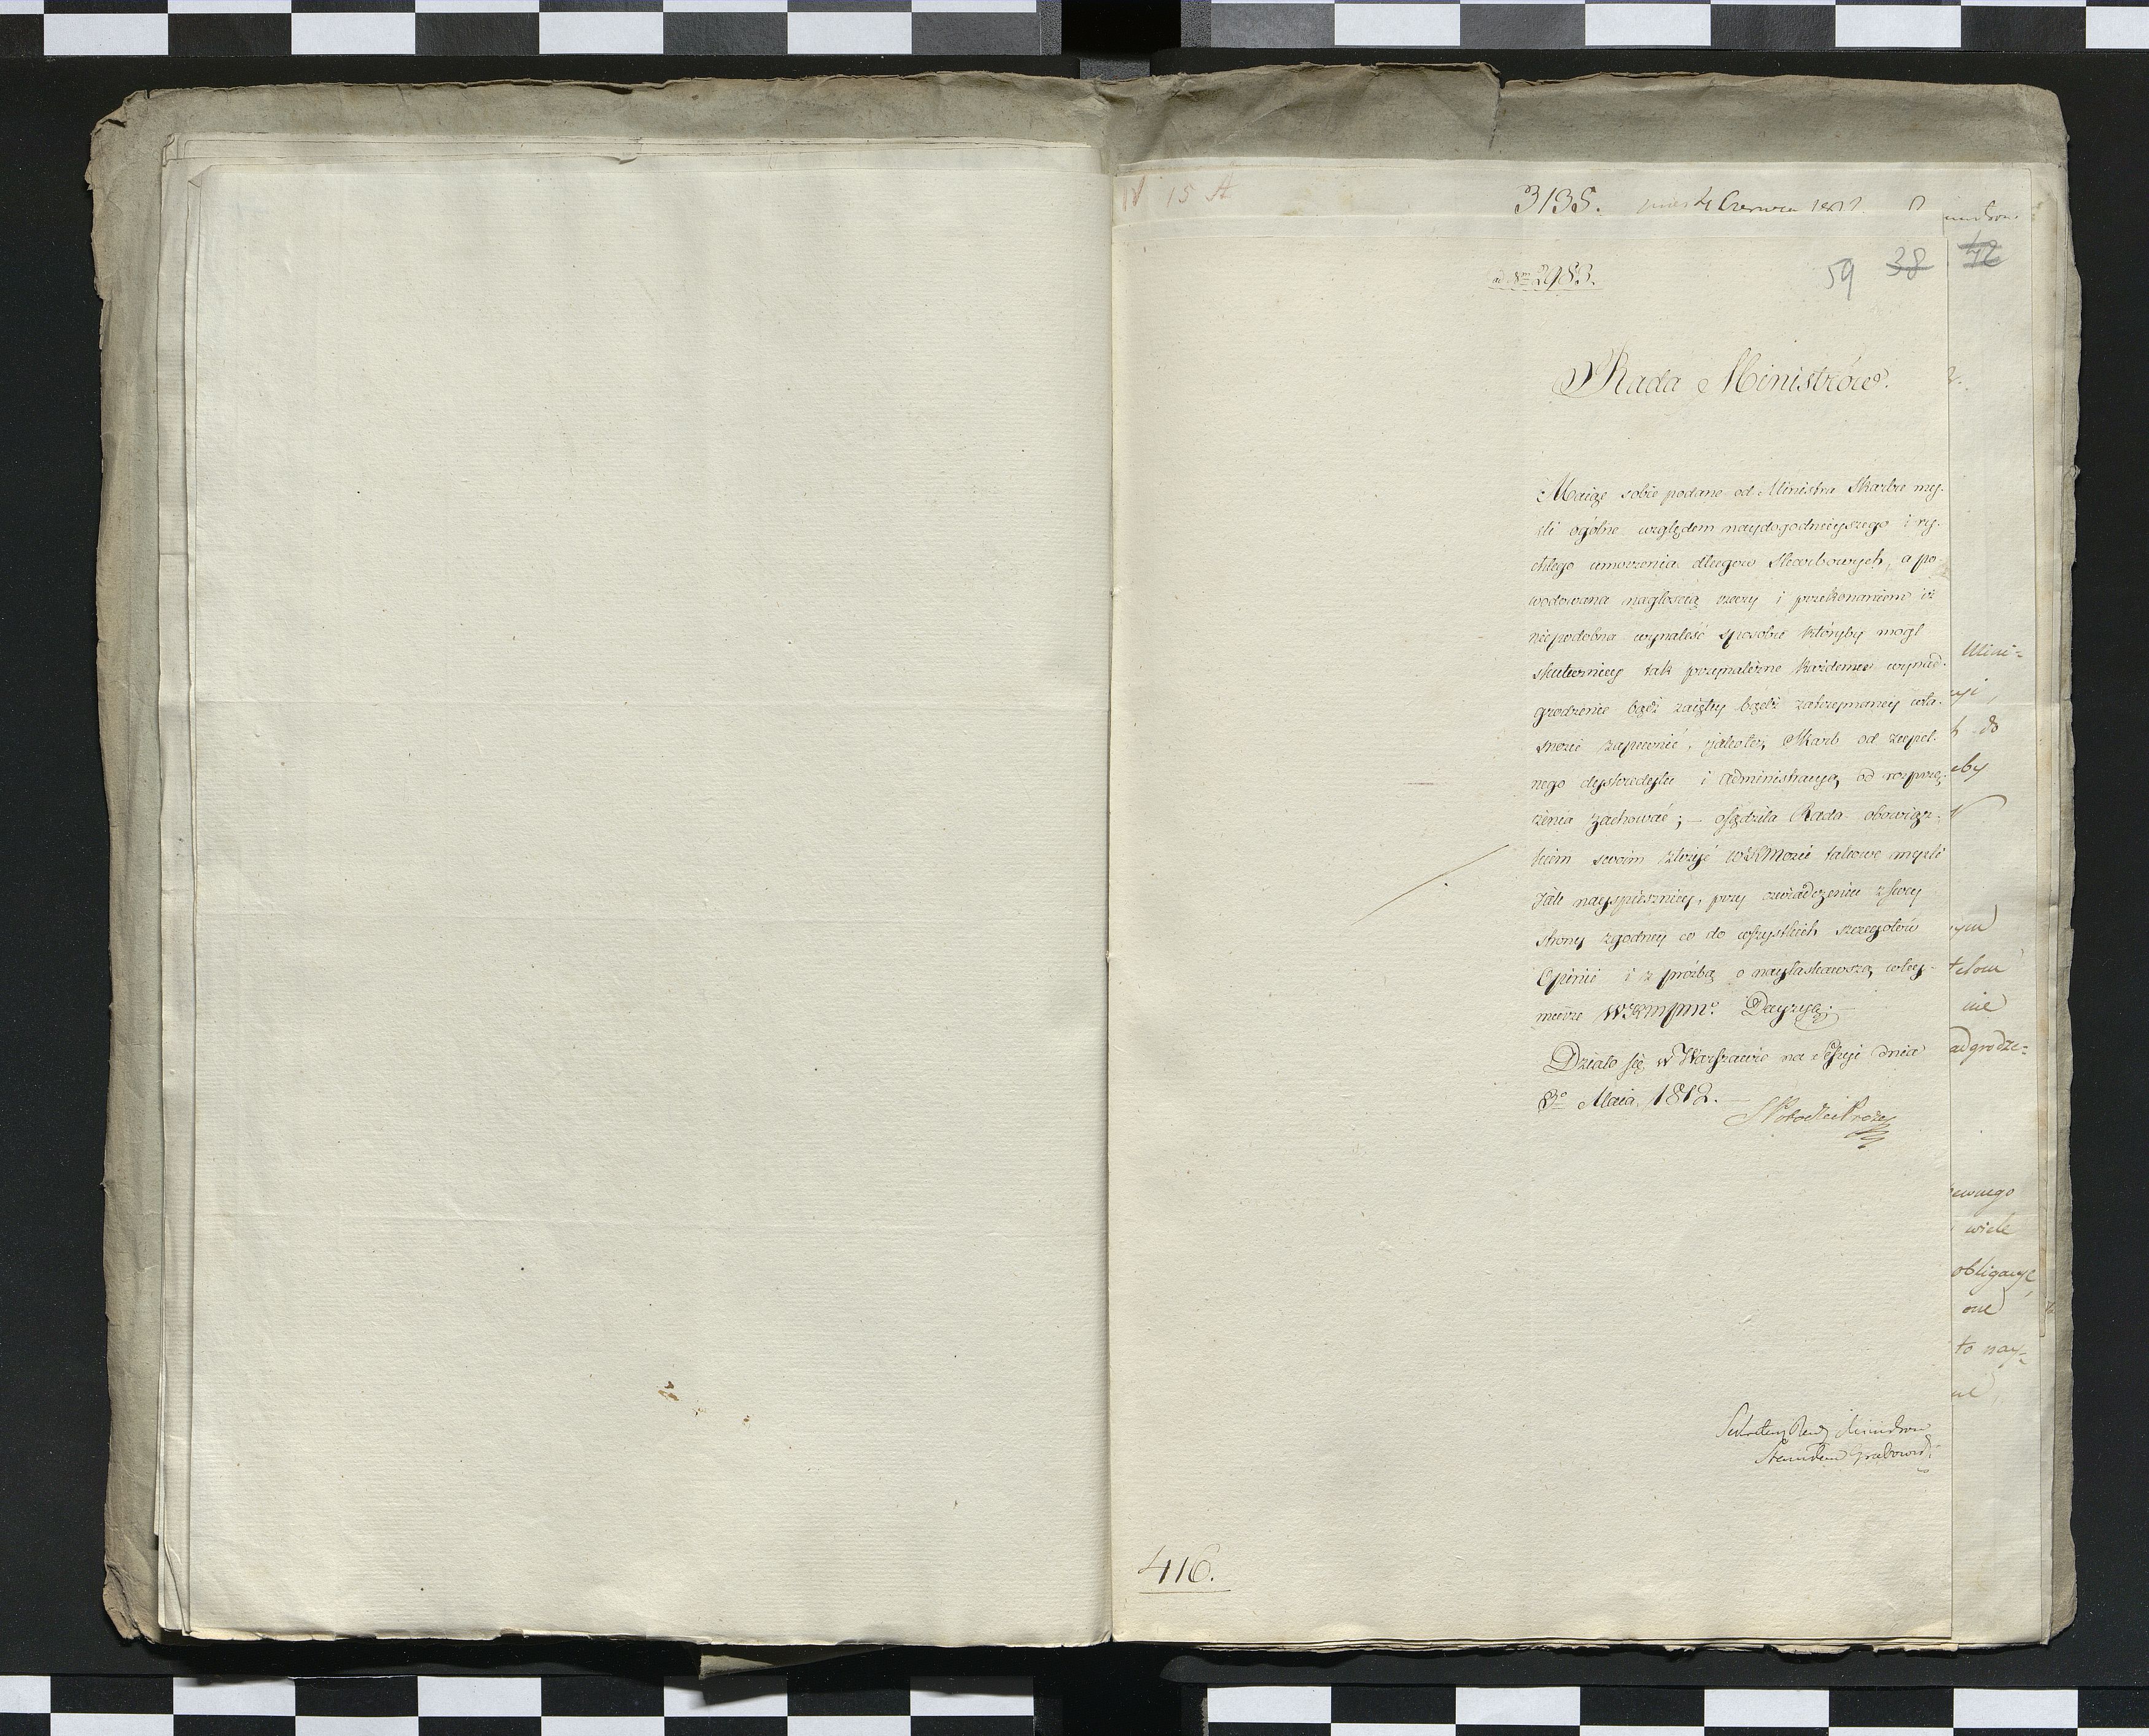 IV 15 A
3135. 4 Czerwca
ad Nrm 2983.
59 38 42
Rada Ministrów.
Maiąc sobie podane od Ministra Skarbu my-
sli ogólne względem naydogodnieyszego i ry-
chłego umorzenia długow Skarbowych, a po
wodowana nagłoscią rzeczy i przekonaniem iż
niepodobna wynaleść sposobu któryby mogł
skuteczniey tak przynależne każdemu wynad-
grodzenie bądź zaiętey bądź zatrzymaney wła-
snosci zapewnić, jakoteż Skarb od zupeł-
nego dyskredytu i Administracyą od rozprzę-
żenia zachować; – osądziła Rada obowiąz-
kiem swoim złożyć WKMości takowe mysli
Jak nayspieszniey, przy oswiadczeniu z swey
strony zgodney co do wszystkich szczegołów
Opinii i z prozbą o nayłaskawszą w tey
mierze WKMPM. Decyzyą. –
Działo się w Warszawie na Sessyi dnia
3o Maia 1812. –
Sekretarz Rady Ministrow
Grabowski
416.
Mini-
do
eby
nie
adgrodze-
wiele
obligacye
one
to nay-